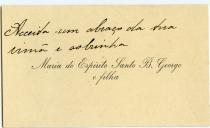 Acceita um abraço da tua
irmã e sobrinha
Maria do Espirito Santo B. George
e filha